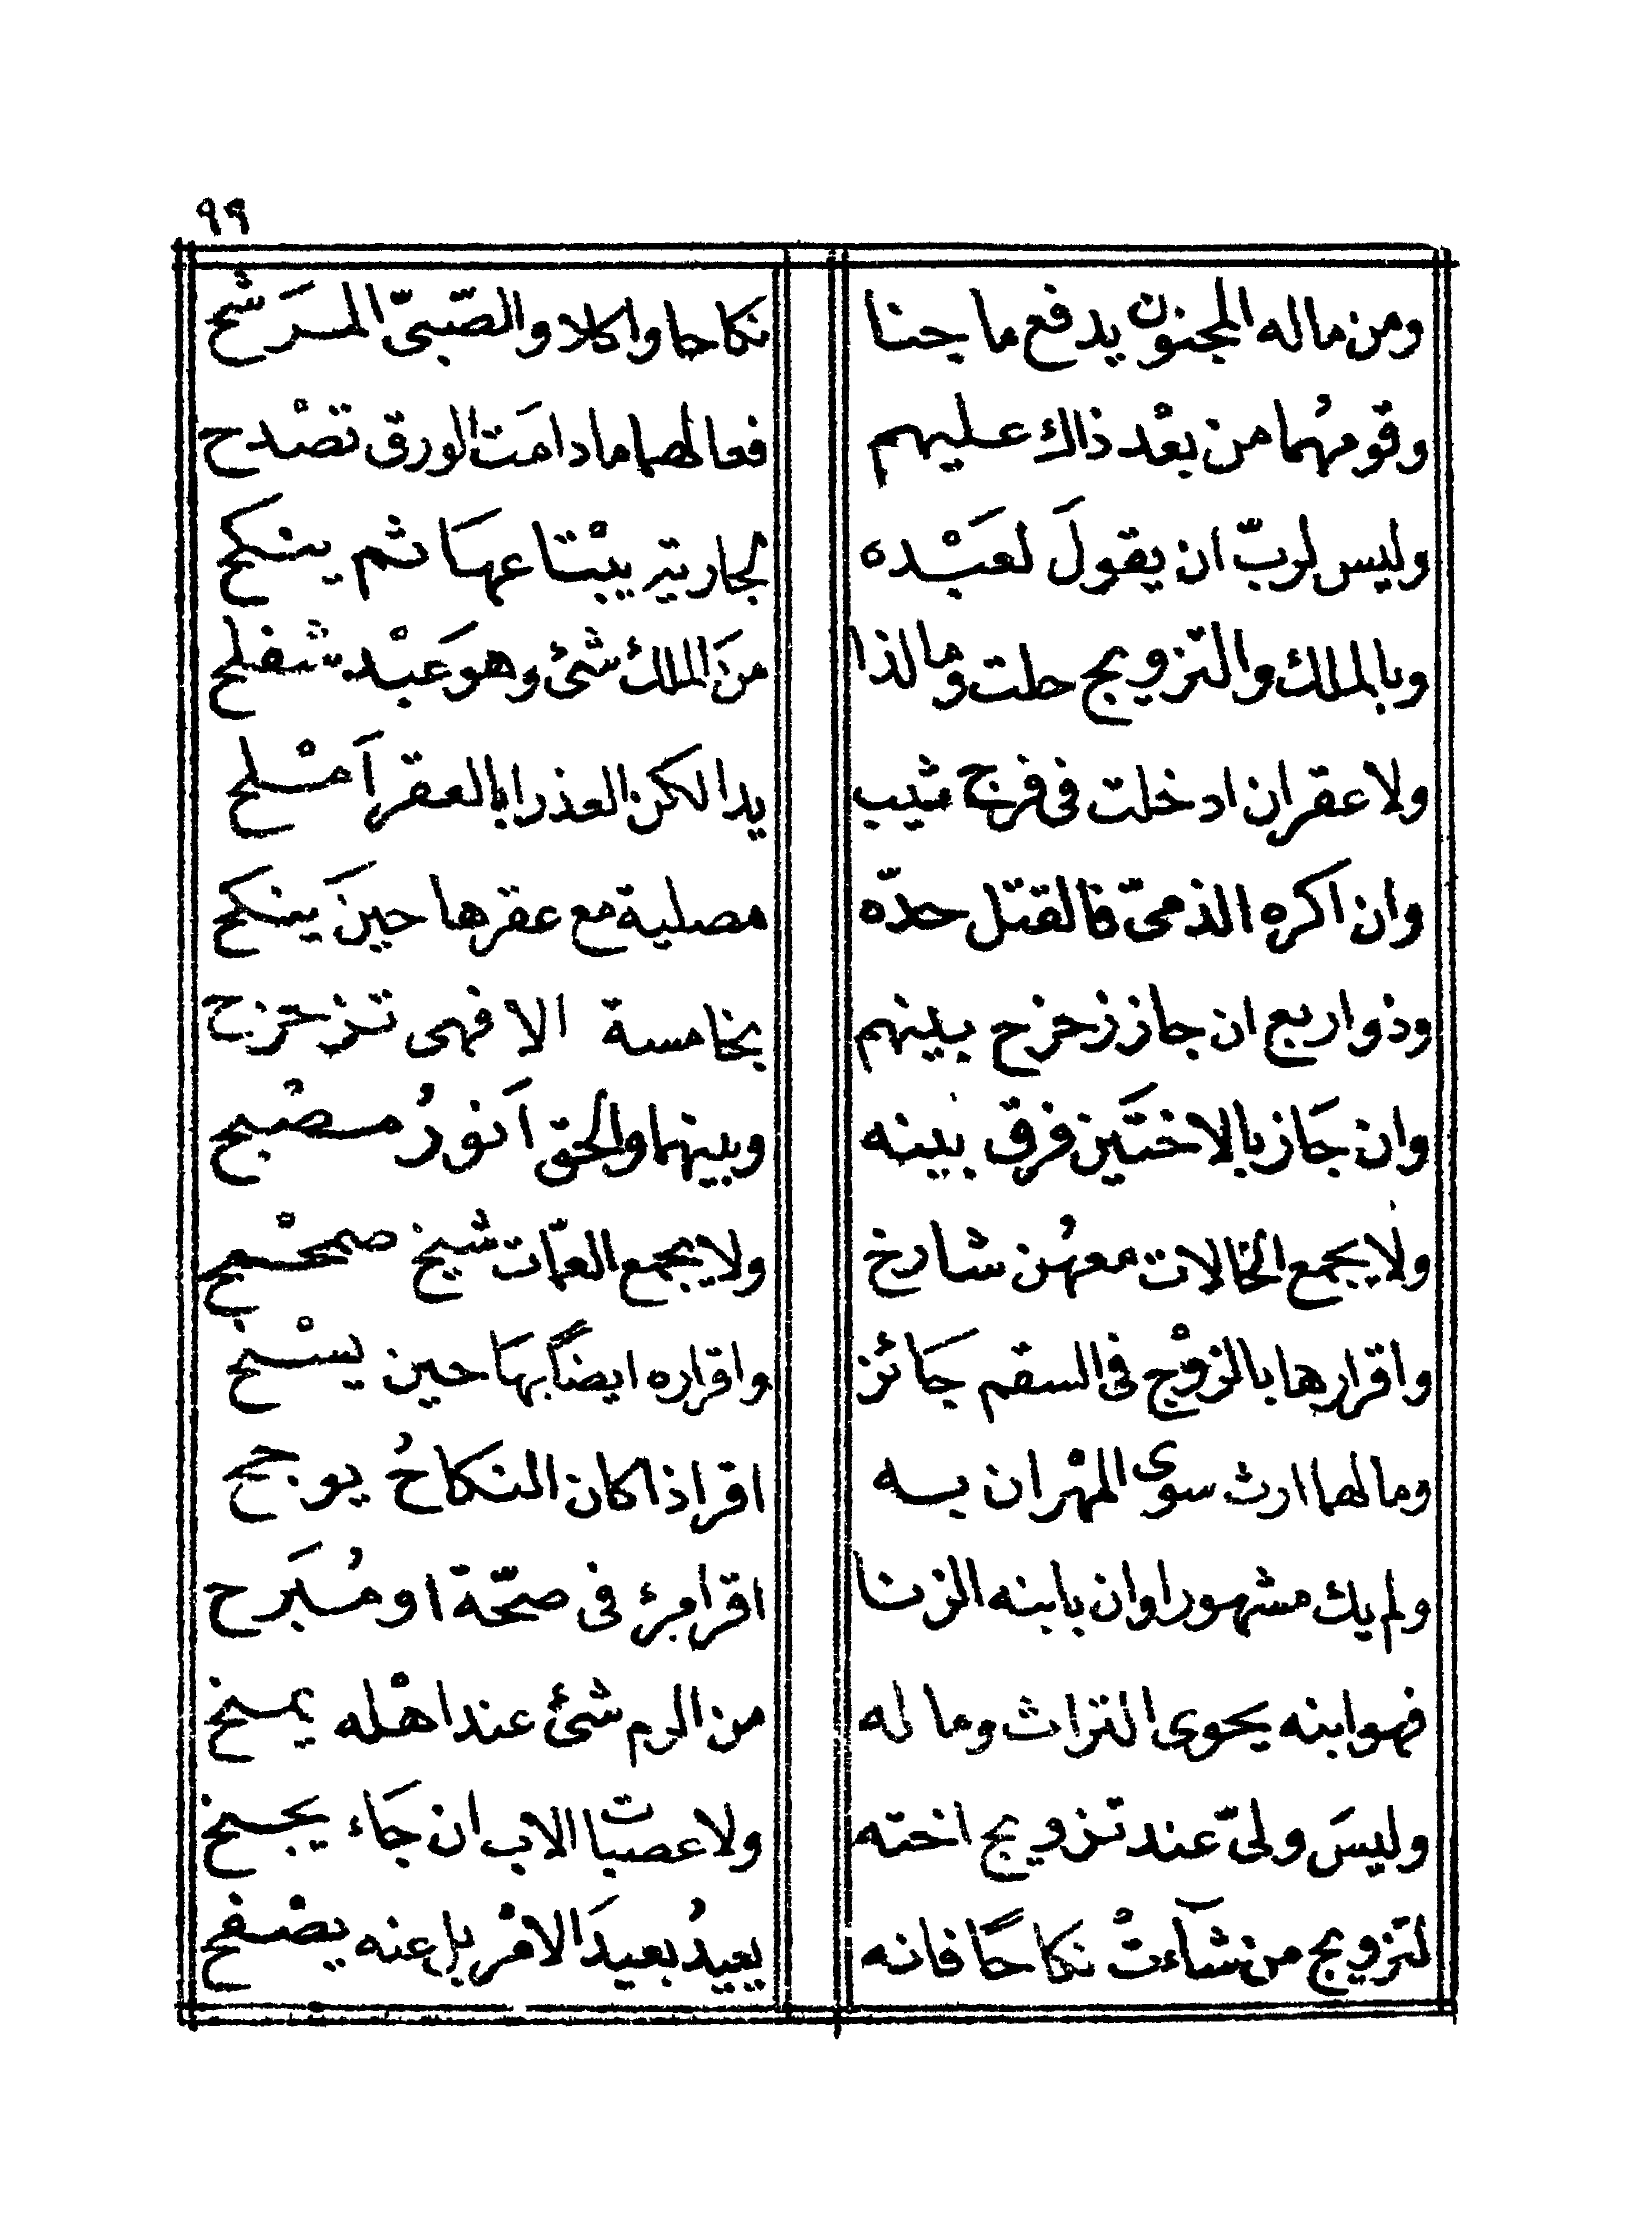 ٩٩
ومن ماله المجنون يدفع ما جنا نكاحا واكلا والصّبىّ المرَشح
وقومهُما من بعْد ذاك عليهم فعالهما مادامَت الورق تصْدح
وليس لربّ ان يقولَ لعَبْده لجارية بيْتا عهَا ثم ينكح
وبالملك والتزويج حلت وما لذا منَ الملك شئ وهوَ عبْد شفلح
ولا عقران ادخلت فى فرج ثيب يدا لكن العذرا بالعقر اَمْلح
وان اكره الذمىّ فالقتل حدّه مصلية مع عقرها حينَ ينكح
وذو اربع ان جاز زحزح بينهم بخامسة الا فهى تزحزح
وان جَاز بالاختَين فرق بينه وبينهما والحق اَنورُ مصْبح
ولا يجمع الخالات معهُن شارخ ولا يجمع العمّات شيخ صمحْمح
واقرارها بالزوْج فى السقم جَائز واقراره ايضاً بهَا حين يسْنح
وما لهما ارث سوى المهْر ان به اقر اذا كان النكاحُ يوجح
ولم يك مشهورا وان بابنه الزنا اقر امرئ فى صحّة او مُبَرح
فهو ابنه يحوى التراث وما له من الرم شئ عند اهْله يمنح
وليسَ ولىّ عند تزويج اخته ولا عصبات الاب ان جَاء يجنح
لتزويج من شآءتْ نكاحاً فانه بعيدُ بعيدَ الامْر بل عنه يصْفح